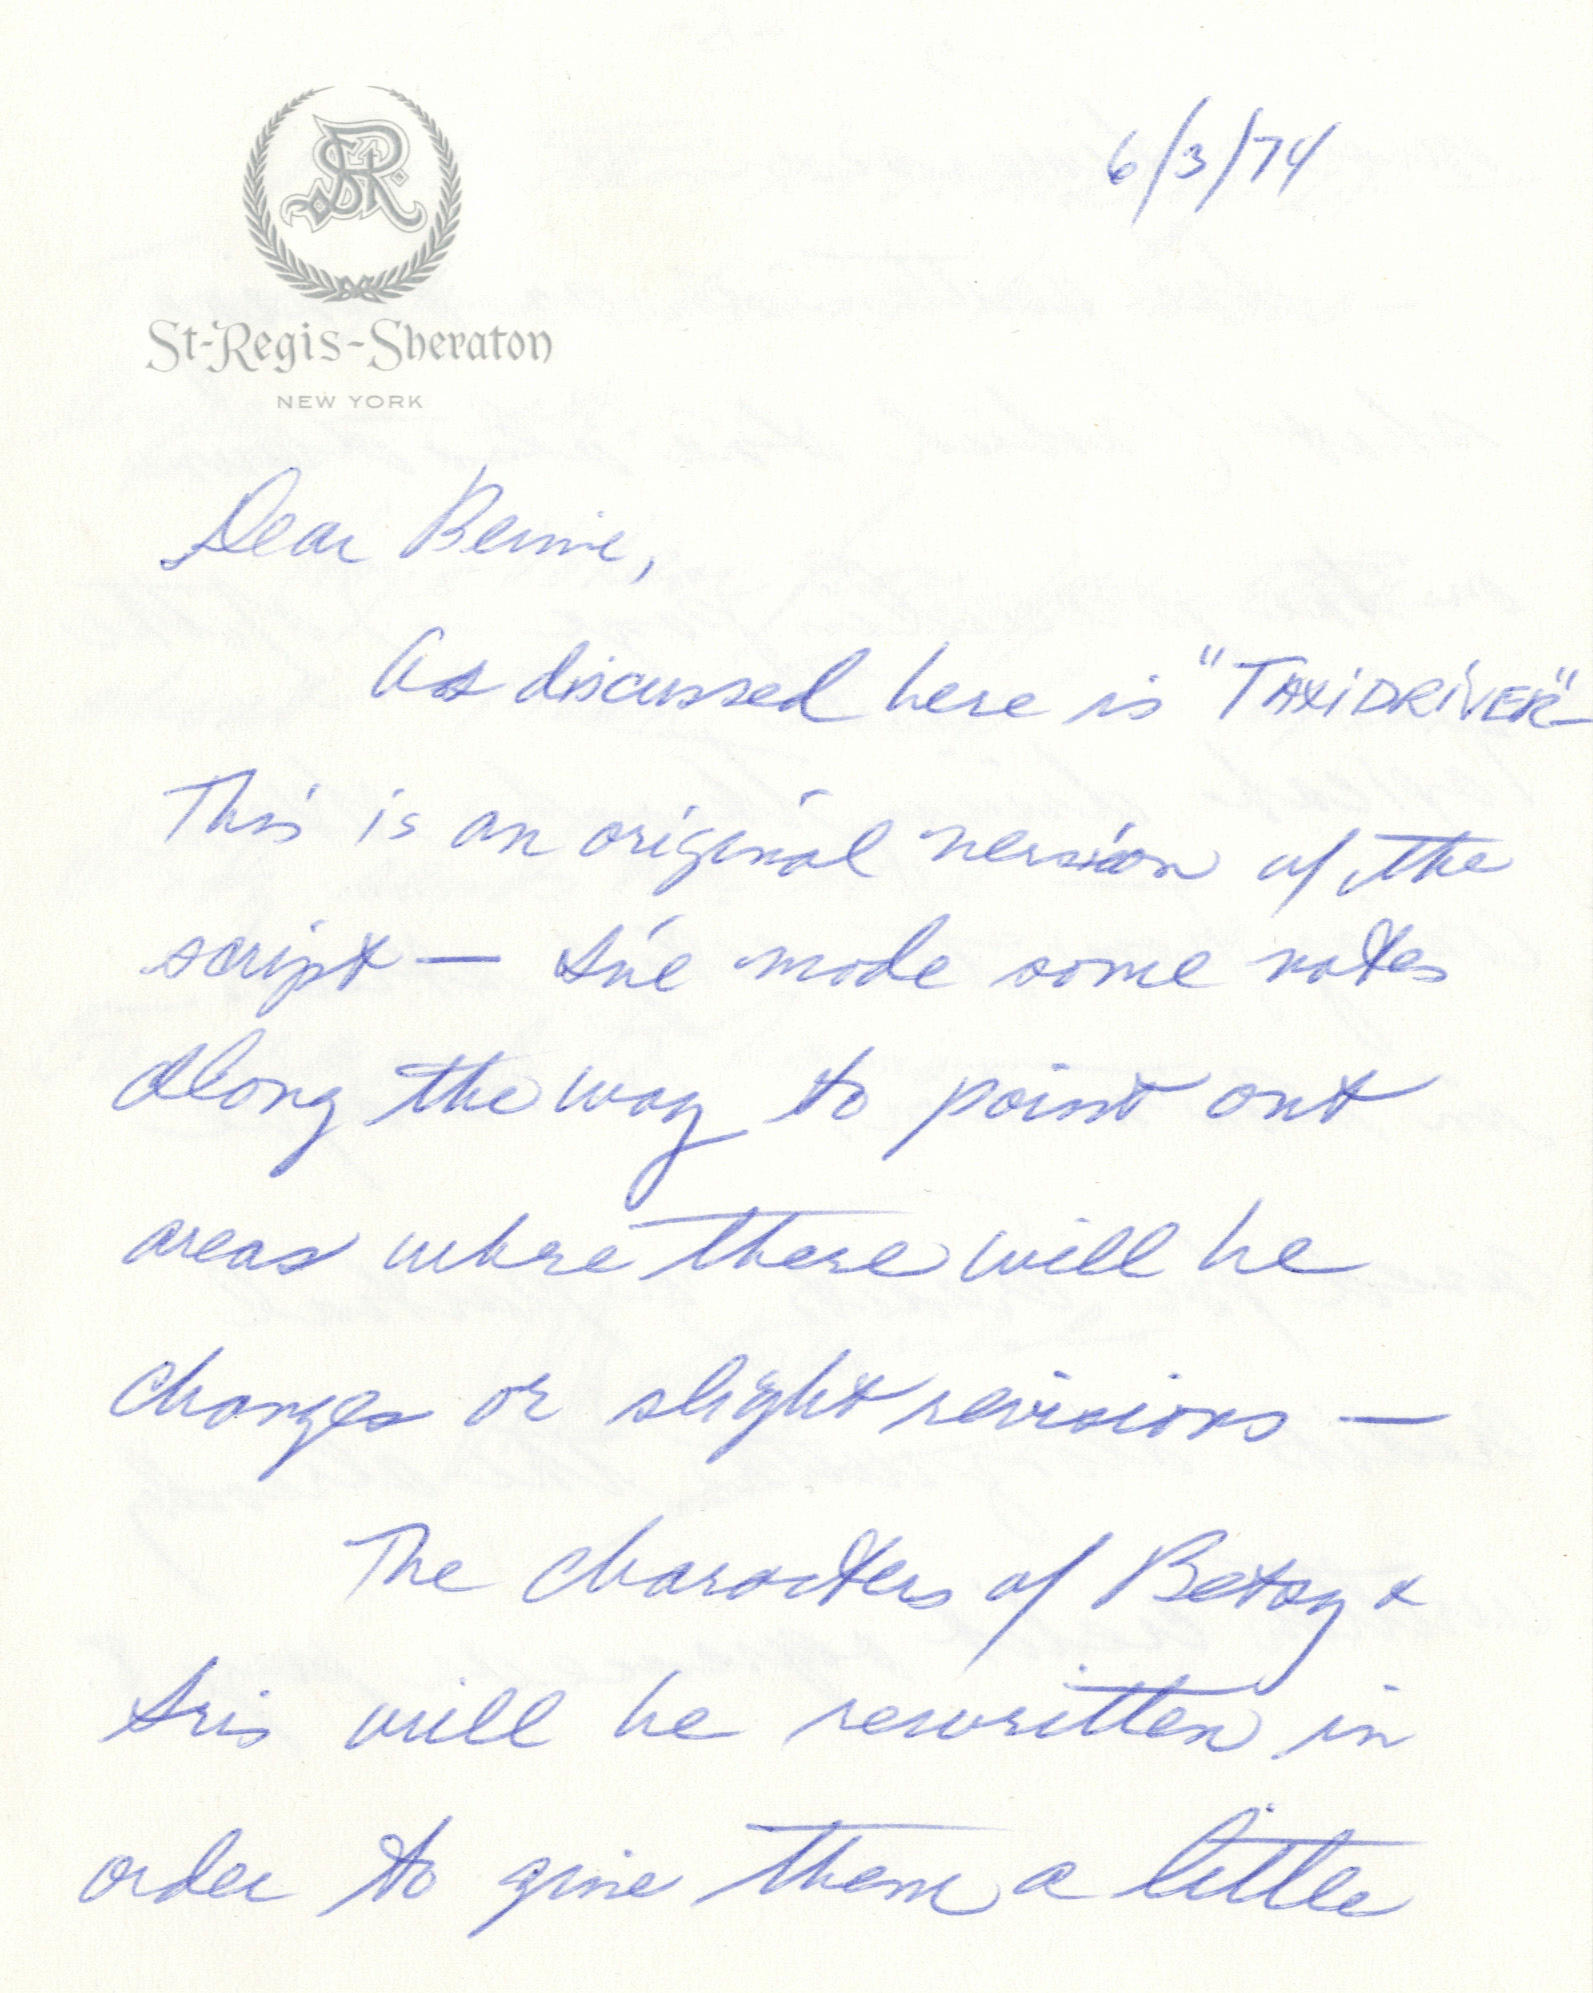 6/3/74
SR
St-Regis-Sheraton
NEW YORK
Dear Bernie,
As discussed here is "TAXI DRIVER" —
This is an original version of the
script — I've made some notes
along the way to point out
areas where there will be
changes or slight revisions —
The characters of Betsy &
Iris will be rewritten in
order to give them a little